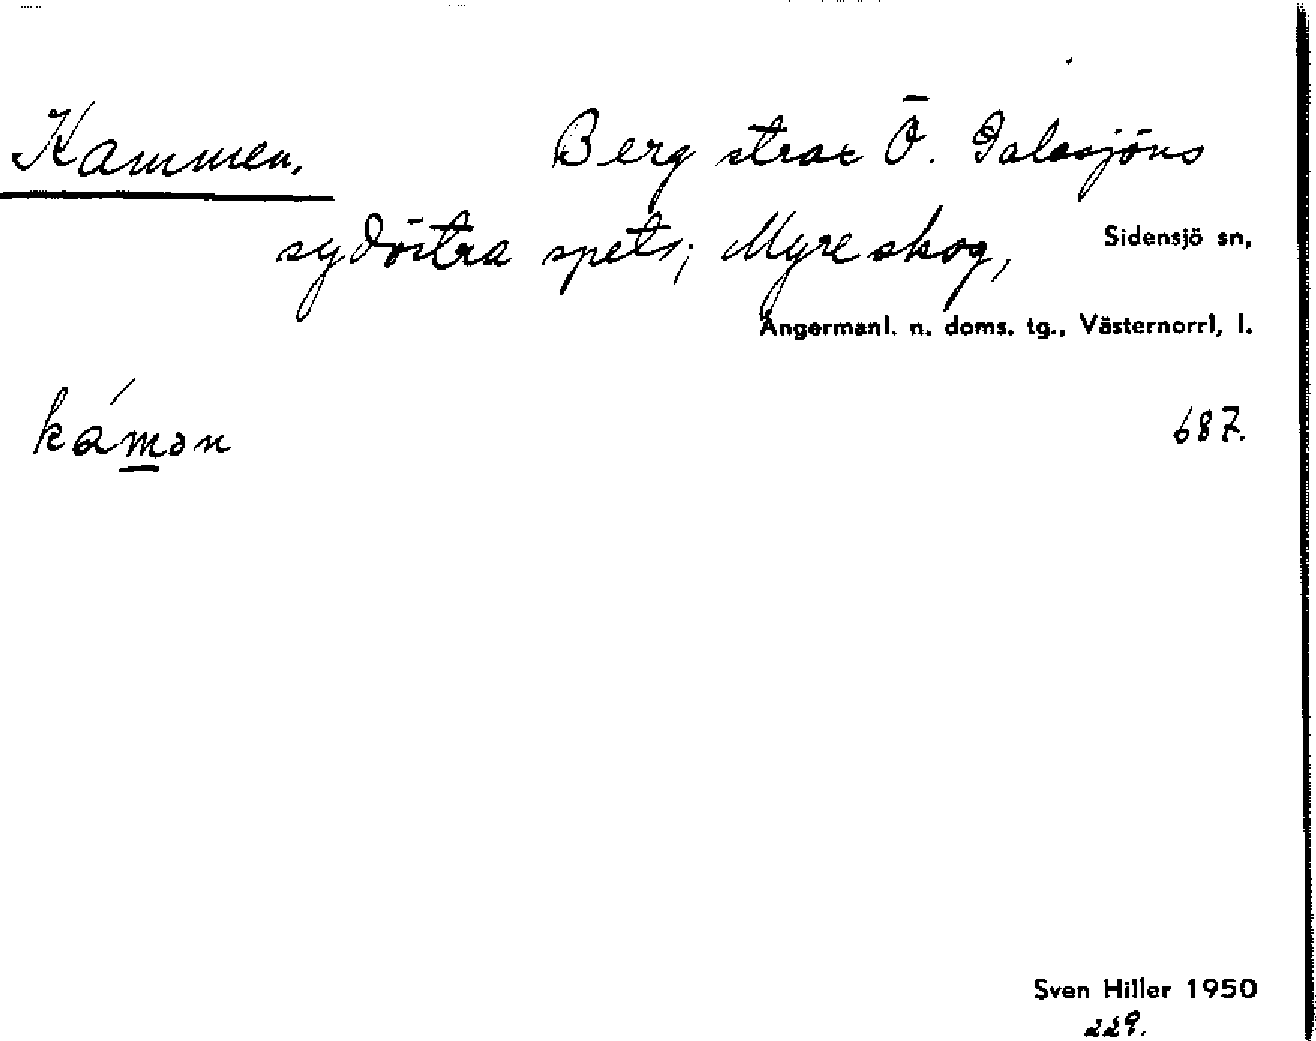 Kammen. Berg strax Ö. Galasjöns
sydöstra spets; Myre skog, Sidensjö sn,
Ångermanl. n. doms. tg., Västernorrl, l.
kámən 687.
Sven Hiller 1950
229.